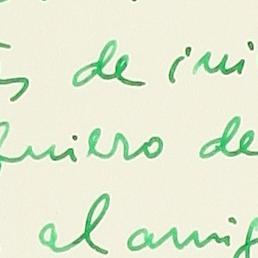 de ini
quiero de
al amig